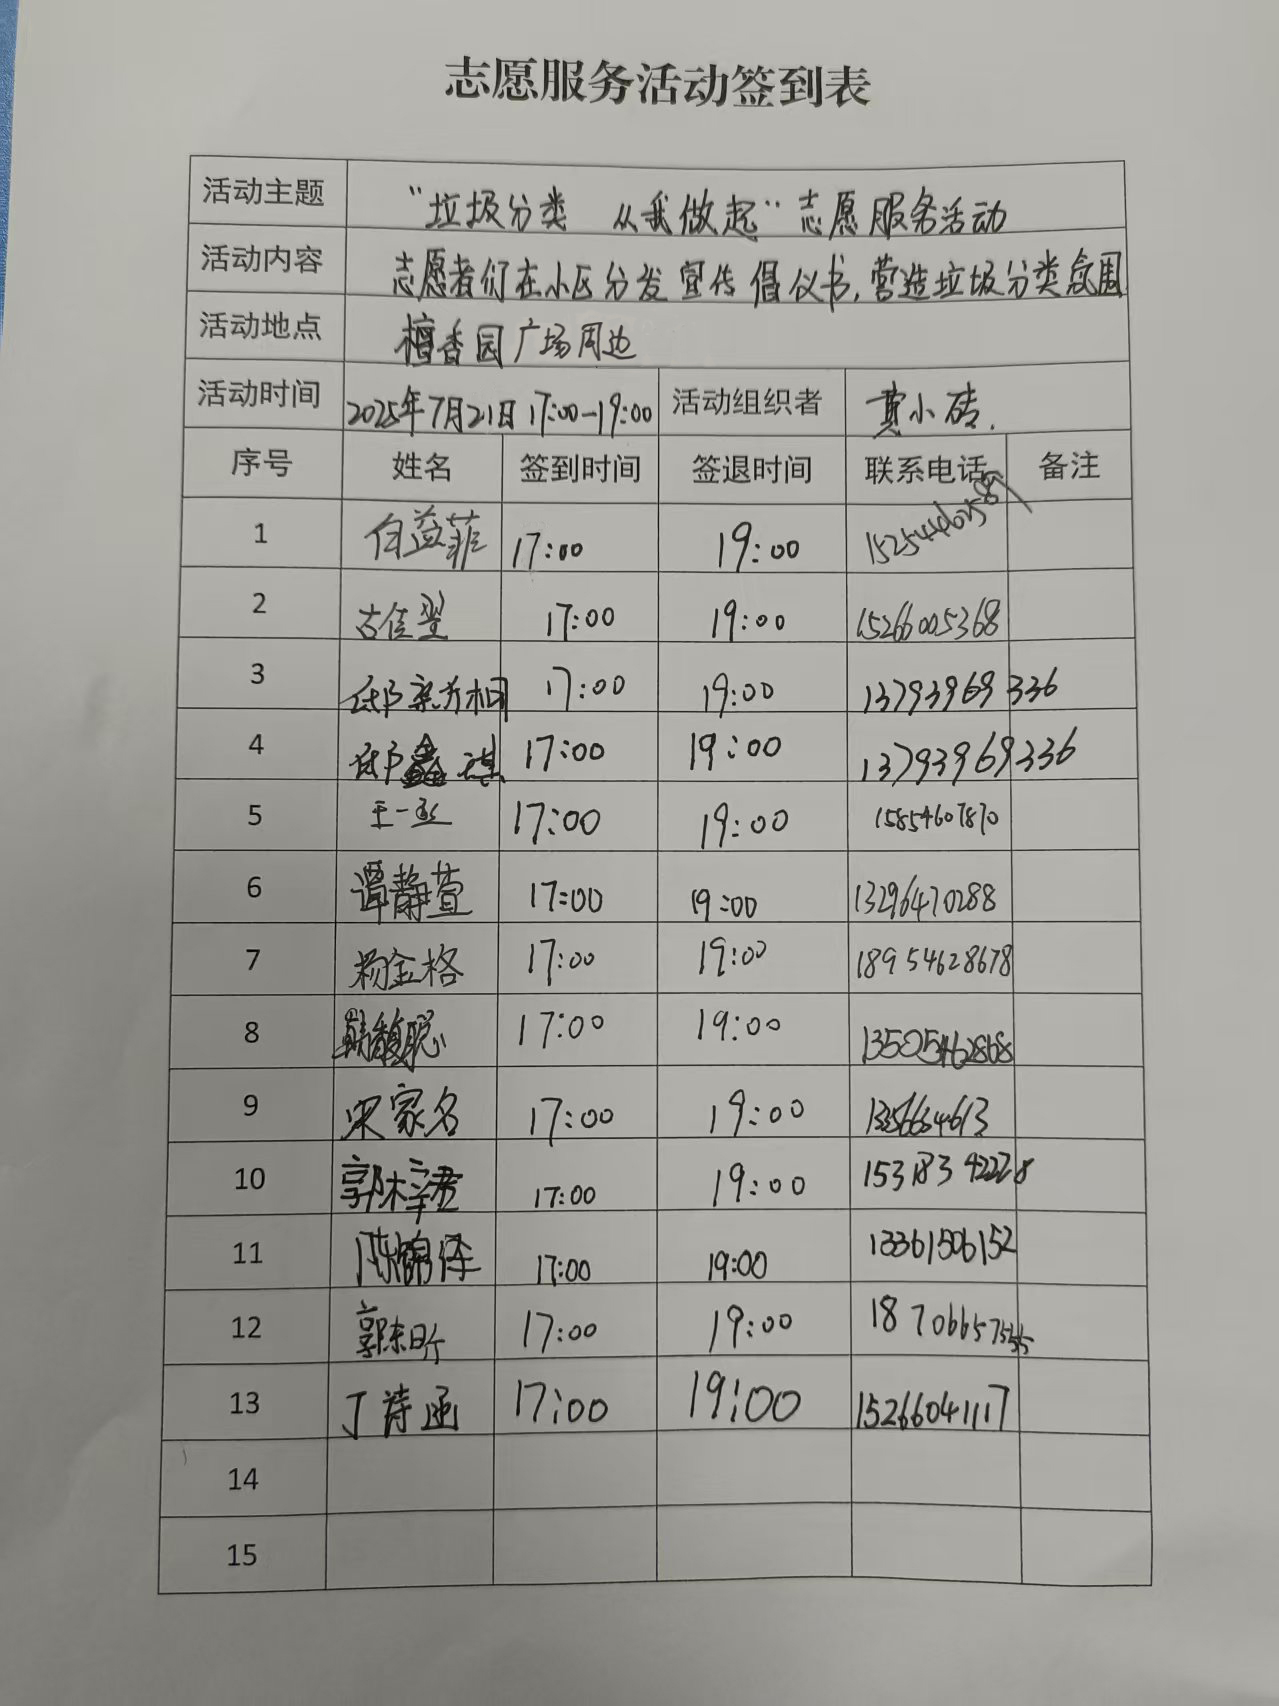 志愿服务活动签到表
活动主题 “垃圾分类 从我做起”志愿服务活动
活动内容 志愿者们在小区分发宣传倡仪书,营造垃圾分类氛围
活动地点 檀香园广场周边
活动时间 2025年7月21日 17:00-19:00 活动组织者 黄小砖.
序号 姓名 签到时间 签退时间 联系电话 备注
1 17:00 19:00
2 古佳翌 17:00 19:00 15266005368
3 17:00 19:00 13793969336
4 17:00 19:00 13793969336
5 王一丞 17:00 19:00 15854607870
6 谭静萱 17:00 19:00 13296470288
7 杨金格 17:00 19:00 18954628678
8 17:00 19:00 13505462868
9 宋家名 17:00 19:00
10 17:00 19:00 15318342228
11 17:00 19:00 13361506152
12 17:00 19:00
13 丁诗函 17:00 19:00 15266041117
14
15